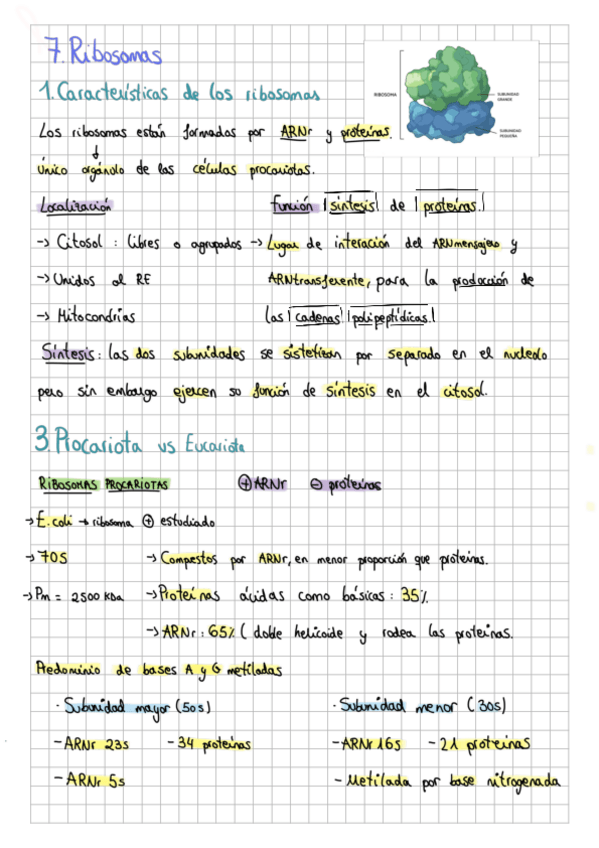 7. Ribosomas
1. Características de los ribosomas
RIBOSOMA
SUBUNIDAD GRANDE
SUBUNIDAD PEQUEÑA
Los ribosomas están formados por ARNr y proteínas.
↓
Único orgánulo de las células procariotas.
Localización
-> Citosol : libres o agrupados
-> Unidos al RE
-> Mitocondrias
Función |síntesis| de |proteínas.|
-> Lugar de interacción del ARNmensajero y
ARNtransferente, para la producción de
las |cadenas| |polipeptídicas.|
Síntesis: las dos subunidades se sistetizan por separado en el nucleolo
pero sin embargo ejercen su función de síntesis en el citosol.
3. Procariota vs Eucariota
RIBOSOMAS PROCARIOTAS ⊕ ARNr ⊖ proteínas
-> E.coli -> ribosoma ⊕ estudiado
-> 70S -> Compestos por ARNr, en menor proporción que proteínas.
-> Pm = 2500 KDa -> Proteínas ácidas como básicas : 35%
-> ARNr : 65% ( doble helicoide y rodea las proteínas.
Predominio de bases A y G metiladas
· Subunidad mayor (50s)
- ARNr 23s - 34 proteínas
- ARNr 5s
· Subunidad menor (30s)
- ARNr 16s - 21 proteínas
- Metilada por base nitrogenada